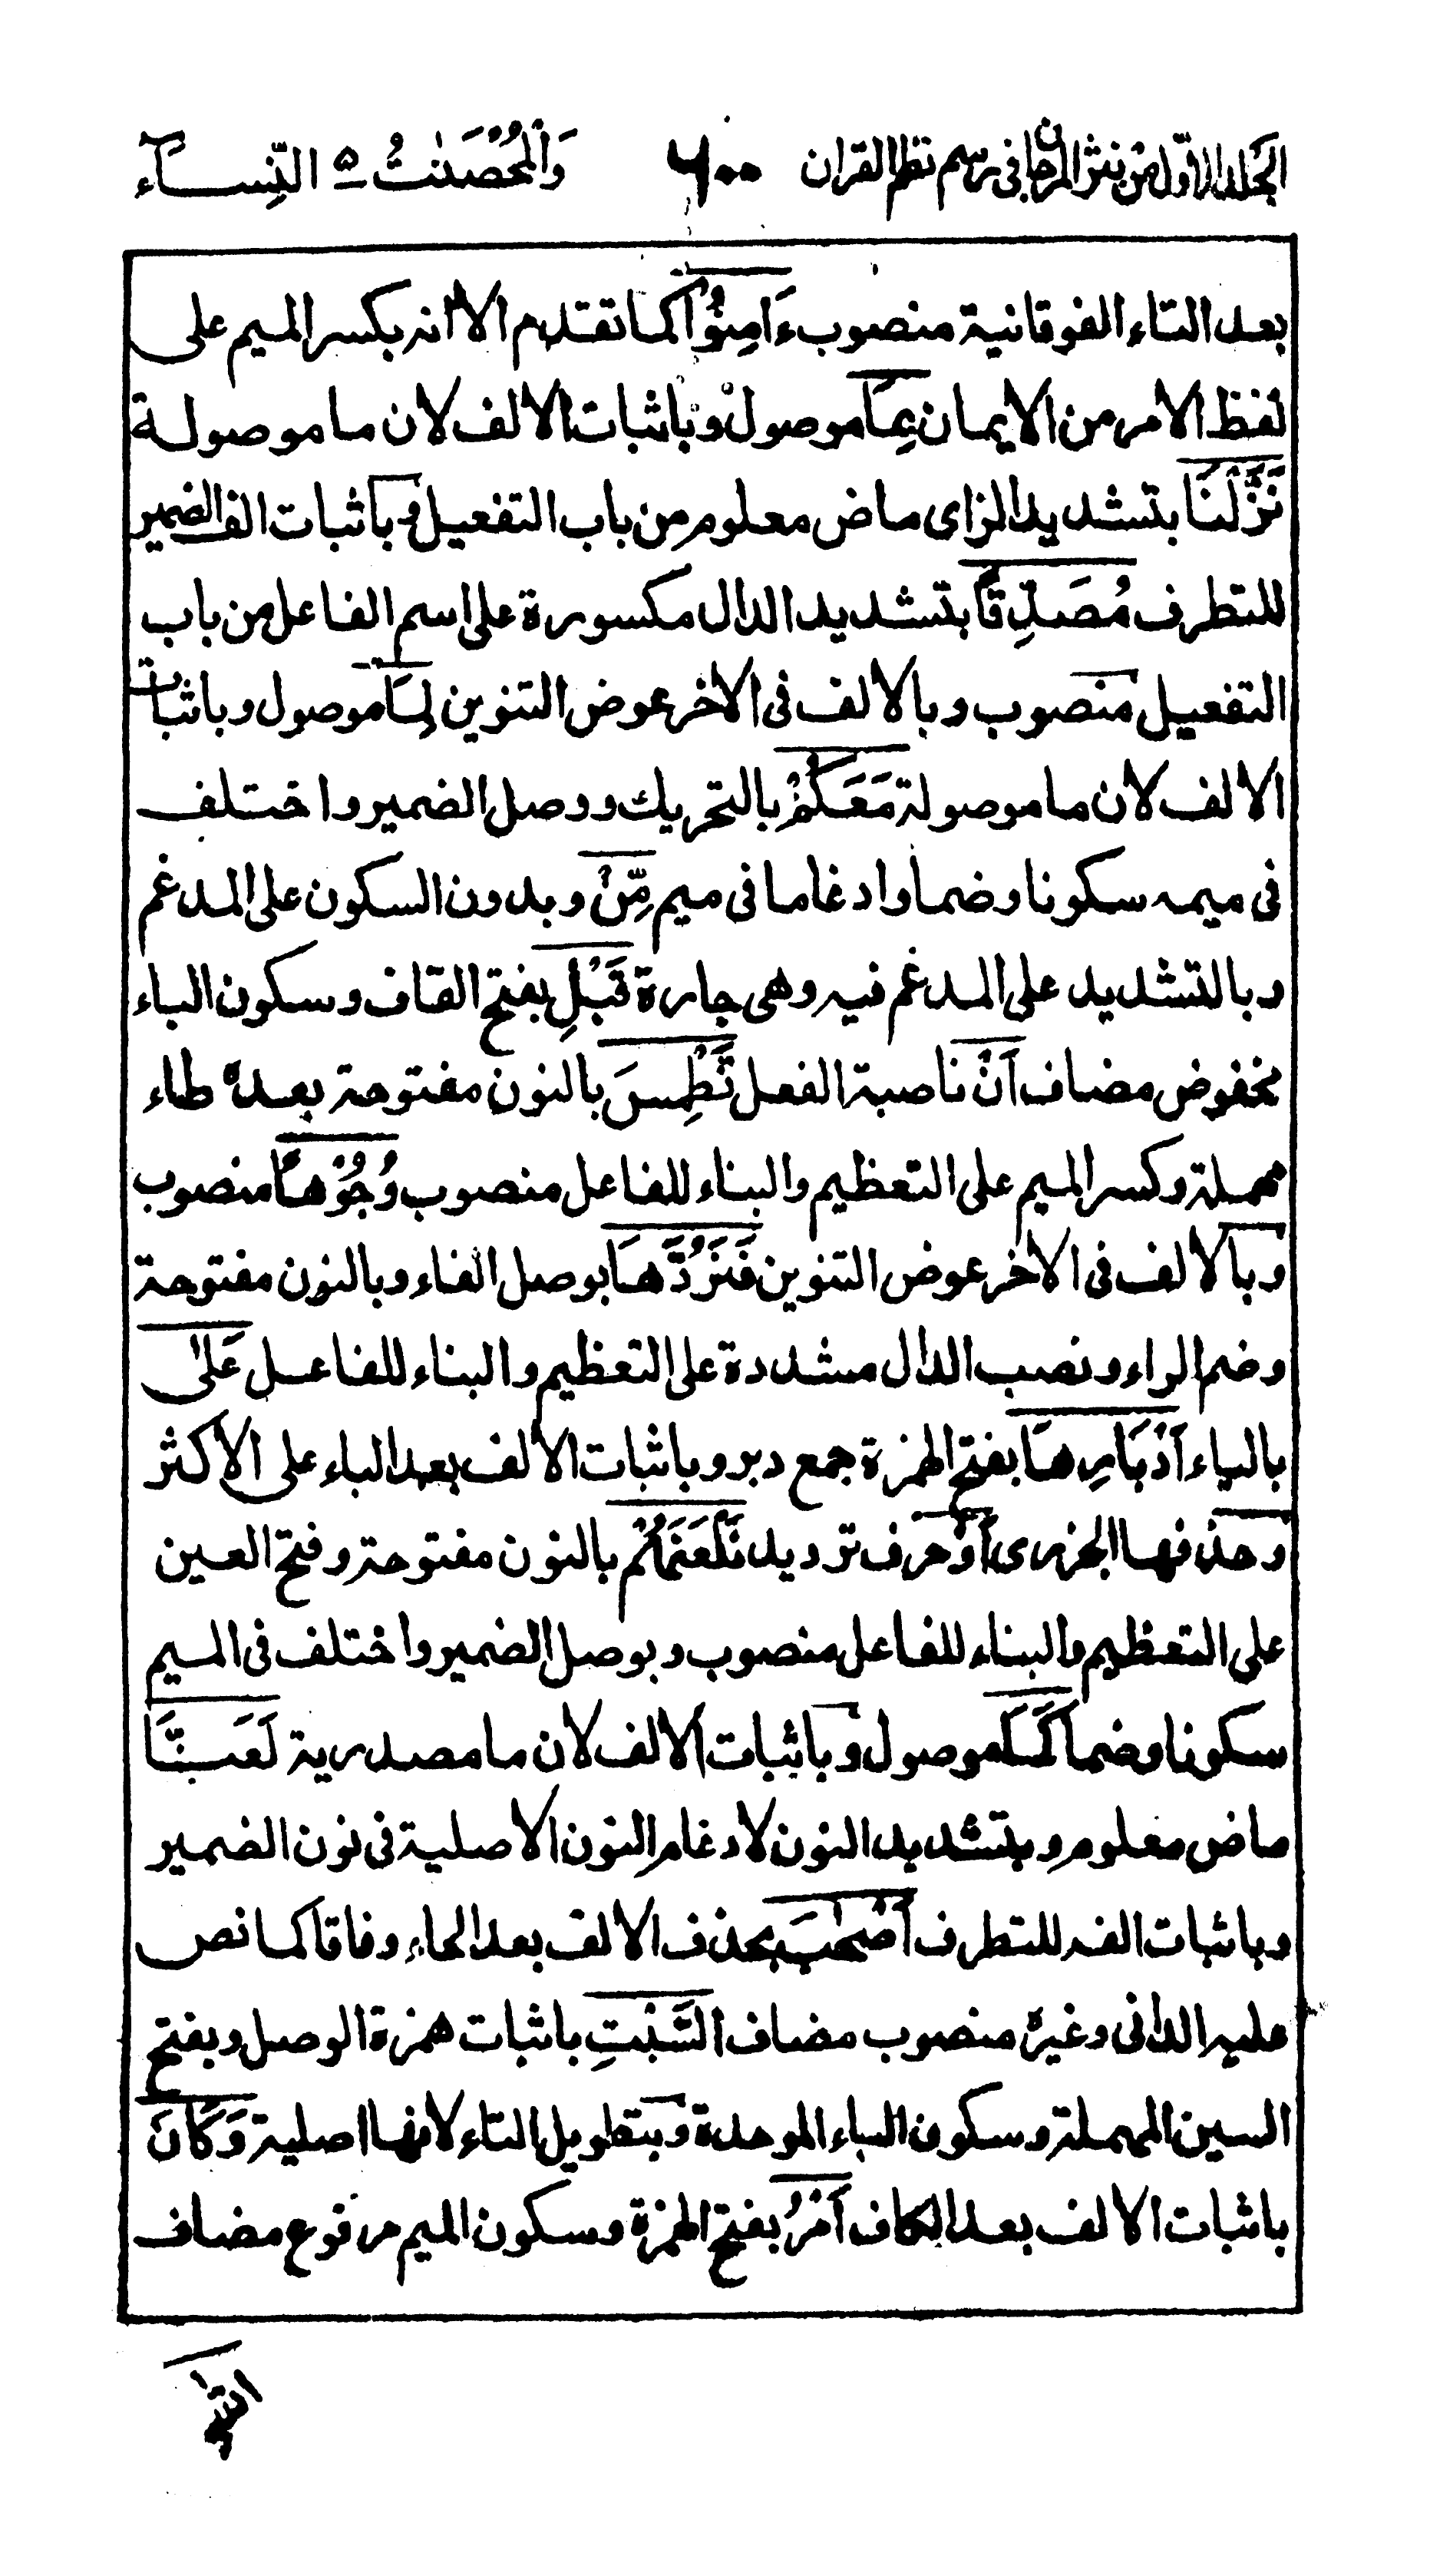 الجلد الاوّل من نثر المرجان فى رسم نظم القران ٦٠٠ وَالْمُحْصَنٰتُ ٥ النِّسَآء
بعد التاء الفوقانية منصوب ءَامِنُوْا كما تقدم الا انه بكسر الميم على
لفظ الامر من الايمان بِمَا موصول وباثبات الالف لان ما موصولة
نَزَّلْنَا بتشديد الزاى ماض معلوم من باب التفعيل وباثبات الف الضمير
للتطرف مُصَدِّقًا بتشديد الدال مكسورة على اسم الفاعل من باب
التفعيل منصوب وبالالف فى الاخر عوض التنوين لِمَا موصول وباثبات
الالف لان ما موصولة مَعَكُمْ بالتحريك ووصل الضمير واختلف
فى ميمه سكونا وضما وادغاما فى ميم مِّنْ وبدون السكون على المدغم
وبالتشديد على المدغم فيه وهى جارة قَبْلِ بفتح القاف وسكون الباء
مخفوض مضاف اَنْ ناصبة الفعل نَّطْمِسَ بالنون مفتوحة بعده طاء
مهملة وكسر الميم على التعظيم والبناء للفاعل منصوب وُجُوْهًا منصوب
وبالالف فى الاخر عوض التنوين فَنَرُدَّهَا بوصل الفاء وبالنون مفتوحة
وضم الراء ونصب الدال مشددة على التعظيم والبناء للفاعل عَلٰى
بالياء اَدْبَارِهَا بفتح الهمزة جمع دبر وباثبات الالف بعد الباء على الاكثر
وحذفها الجزرى اَوْ حرف ترديد نَلْعَنَهُمْ بالنون مفتوحة وفتح العين
على التعظيم والبناء للفاعل منصوب وبوصل الضمير واختلف فى الميم
سكونا وضما كَمَا موصول وباثبات الالف لان ما مصدرية لَعَنَّا
ماض معلوم وبتشديد النون لادغام النون الاصلية فى نون الضمير
وباثبات الفه للتطرف اَصْحٰبَ بحذف الالف بعد الحاء وفاقا كما نص
عليه الدانى وغيره منصوب مضاف السَّبْتِ باثبات همزة الوصل وبفتح
السين المهملة وسكون الباء الموحدة وبتطويل التاء لانها اصلية وَكَانَ
باثبات الالف بعد الكاف اَمْرُ بفتح الهمزة وسكون الميم مرفوع مضاف